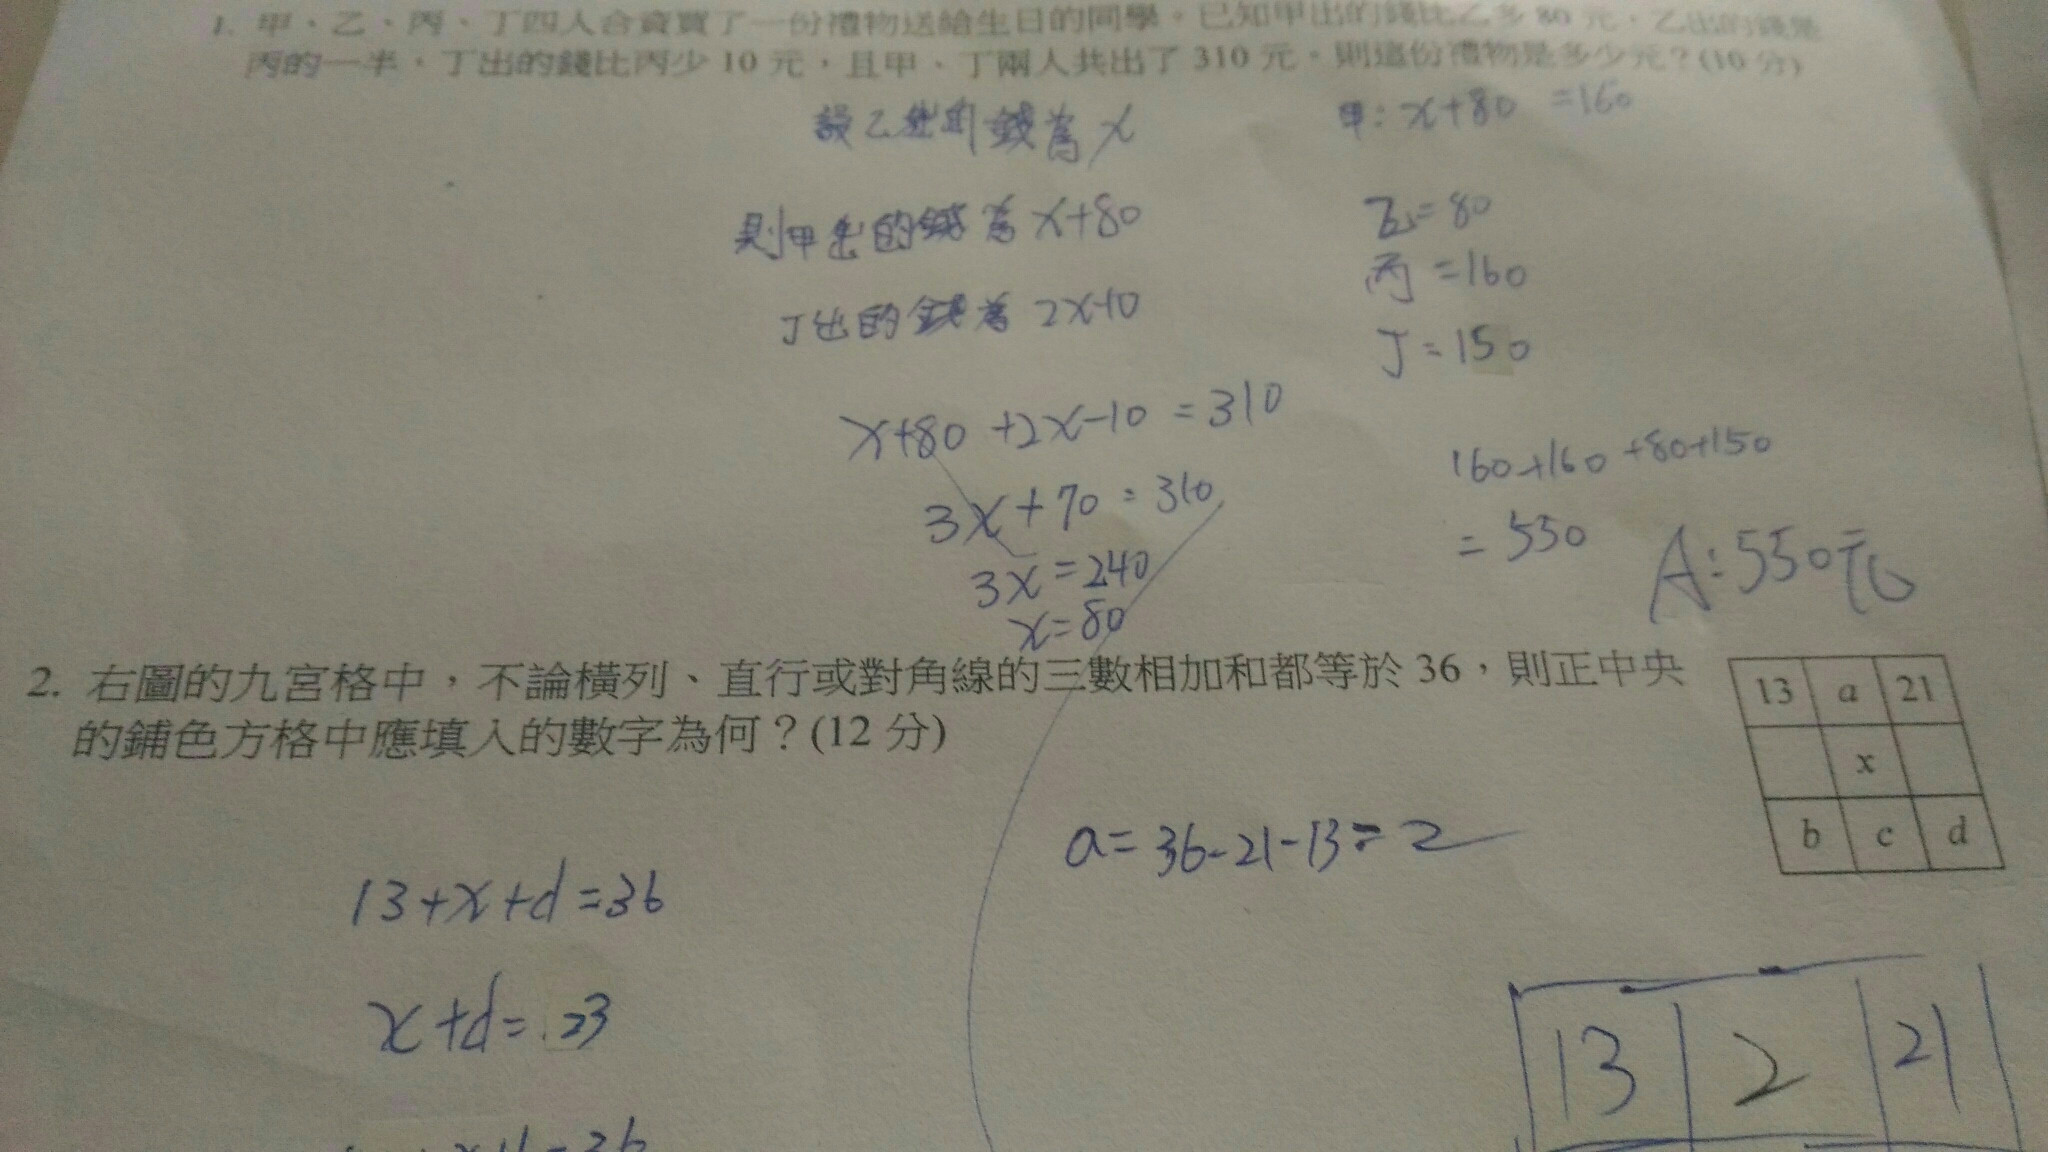 1. 甲、乙、丙、丁四人合資買了一份禮物送給生日的同學。已知甲出的錢比乙多 80 元,乙出的錢是
丙的一半,丁出的錢比丙少 10 元,且甲、丁兩人共出了 310 元,則這份禮物是多少元?(10 分)
設乙出的錢為 x
則甲出的錢為 x+80
丁出的錢為 2x-10
x+80+2x-10=310
3x+70=310
3x=240
x=80
甲:x+80=160
乙=80
丙=160
丁=150
160+160+80+150
=550
A:550元
2. 右圖的九宮格中,不論橫列、直行或對角線的三數相加和都等於 36,則正中央
的鋪色方格中應填入的數字為何?(12 分)
13 a 21
x
b c d
13+x+d=36
x+d=23
a=36-21-13=2
13 2 21
=36